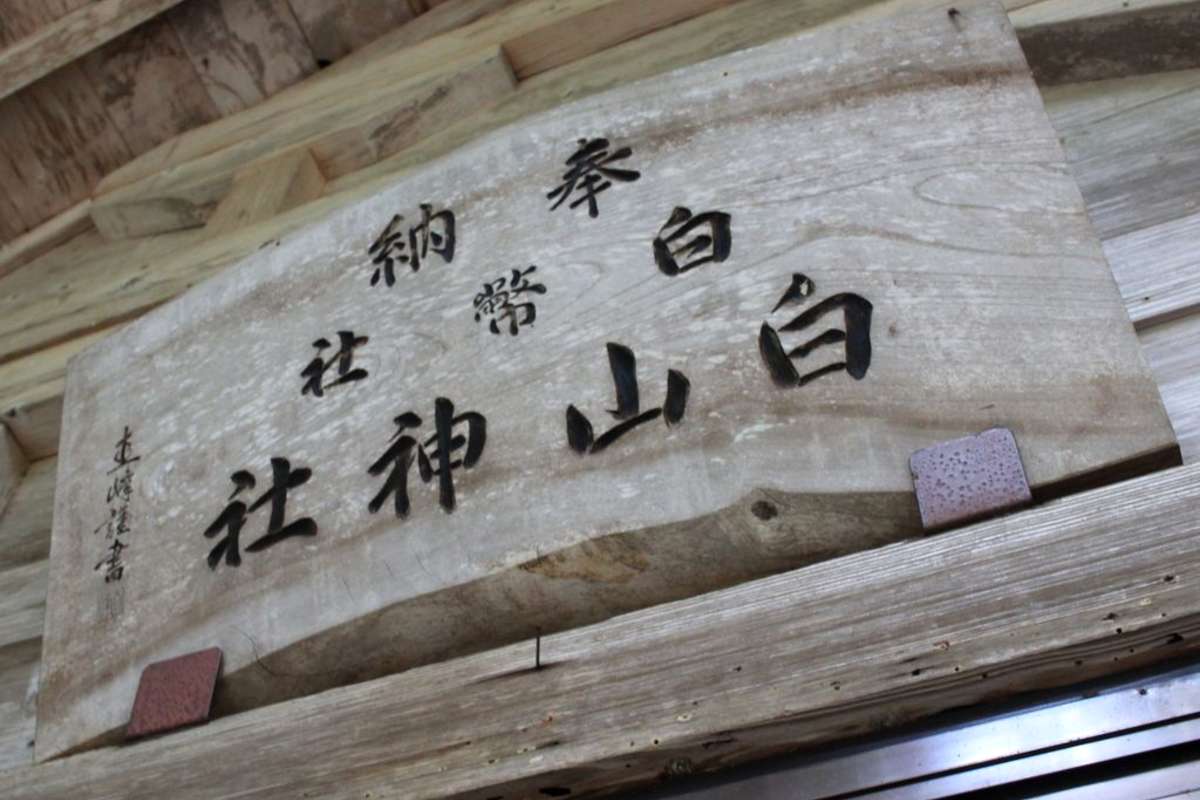 奉納
白幣社
白山神社
謹書